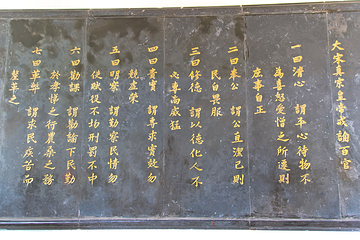 大宋真宗皇帝戒諭百官
一曰清心　謂平心待物不
為喜怒愛憎之所遷則
庶事自正
二曰奉公　謂公直潔己則
民自畏服
三曰修德　謂以德化人不
必專尚威猛
四曰責實　謂專求實效勿
競虛譽
五曰明察　謂勤察民情勿
使賦役不均刑罰不中
六曰勸課　謂勸諭下民勤
於孝悌之行農桑之務
七曰革弊　謂求民疾苦而
釐革之